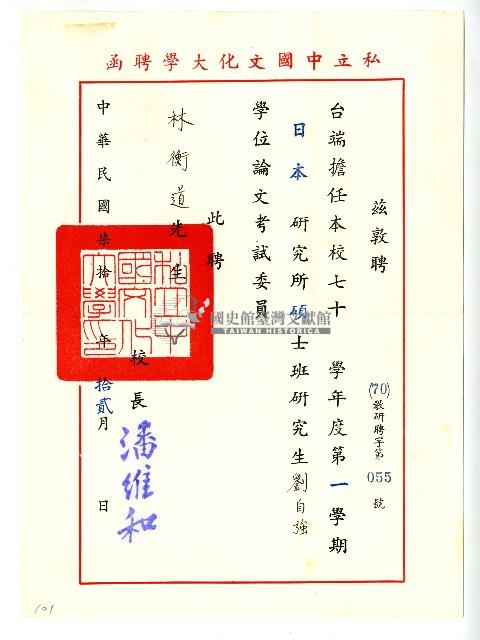 私立中國文化大學聘函
(70)教研聘字第055號
茲敦聘
台端擔任本校七十 學年度第一學期
日本研究所碩士班研究生劉自強
學位論文考試委員
此聘
林衡道先生
校長潘維和
中華民國柒拾年拾貳月 日
私立中國文化大學印
國史館臺灣文獻館
TAIWAN HISTORICA
101